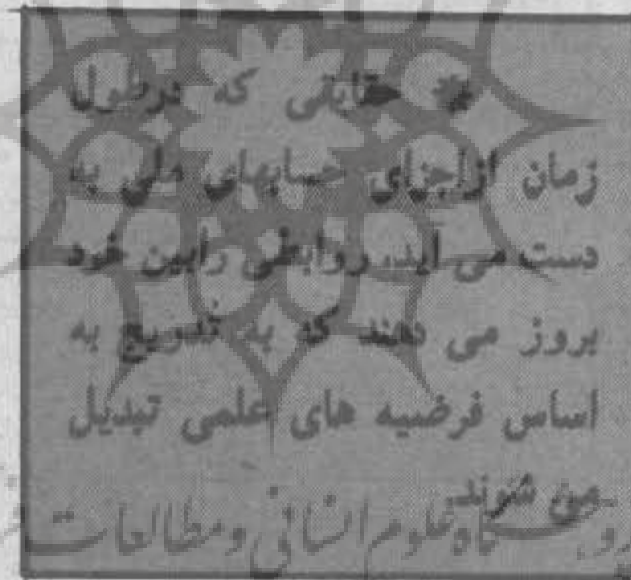 * حقایقی که درطول
زمان ازاجزای حسابهای ملی به
دست می آید، روابطی رابین خود
بروز می دهند که به تدریج به
اساس فرضیه های علمی تبدیل
می شوند.
علوم انسانی و مطالعات